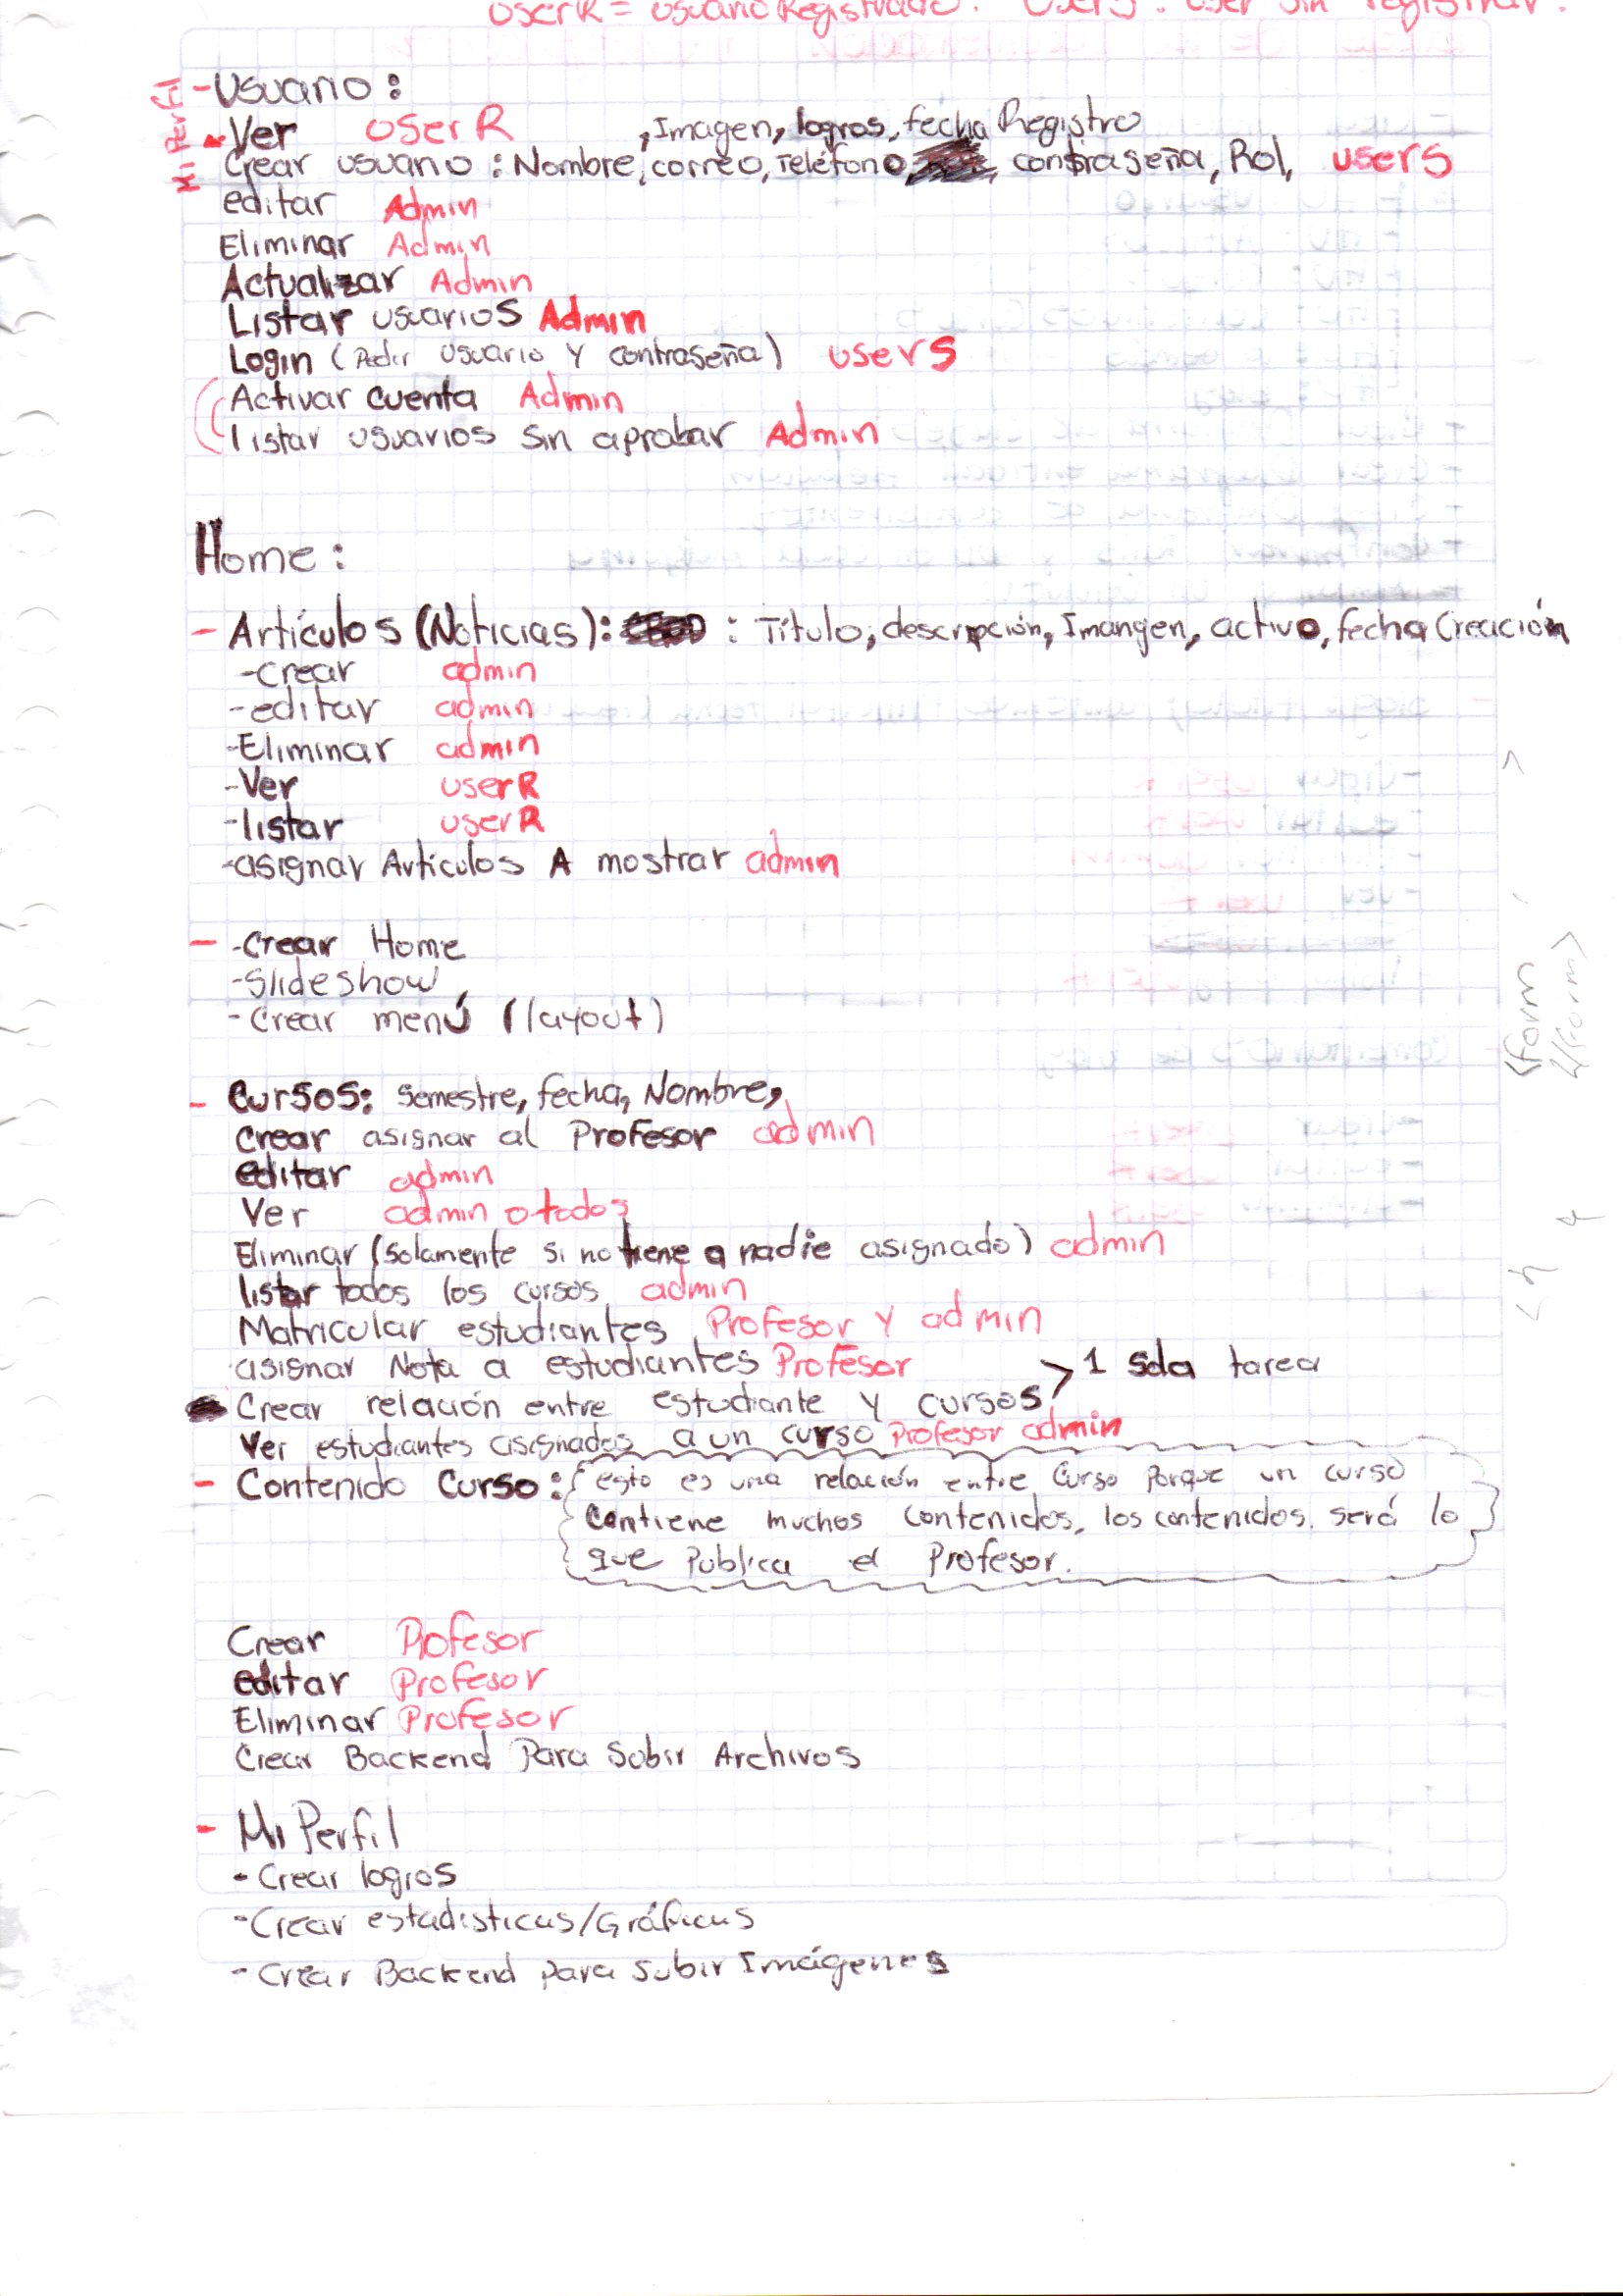 UserR = usuario Registrado. UserS: User sin registrar.
Mi Perfil
- Usuario:
Ver UserR , Imagen, logros, fecha Registro
Crear usuario: Nombre, correo, Teléfono, contraseña, Rol, userS
editar Admin
Eliminar Admin
Actualizar Admin
Listar usuarios Admin
Login (Pedir usuario y contraseña) userS
Activar cuenta Admin
listar usuarios sin aprobar Admin
Home:
- Artículos (Noticias): : Título, descripción, Imangen, activo, fecha Creación
- crear admin
- editar admin
- Eliminar admin
- Ver userR
- listar userR
- asignar Artículos A mostrar admin
- - Crear Home
- Slideshow
- Crear menú (layout)
<form
</form>
- Cursos: Semestre, fecha, Nombre,
Crear asignar al Profesor admin
editar admin
Ver admin o todos
Eliminar (Solamente si no tiene a nadie asignado) admin
listar todos los cursos admin
Matricular estudiantes Profesor y admin
asignar Nota a estudiantes Profesor > 1 sola tarea
Crear relación entre estudiante y cursos
Ver estudiantes asignados a un curso Profesor admin
- Contenido Curso: esto es una relación entre Curso Porque un curso
Contiene muchos contenidos, los contenidos. será lo
que Publica el Profesor.
Crear Profesor
editar Profesor
Eliminar Profesor
Crear Backend Para Subir Archivos
- Mi Perfil
- Crear logros
- Crear estadisticas/Gráficas
- Crear Backend para subir Imágenes